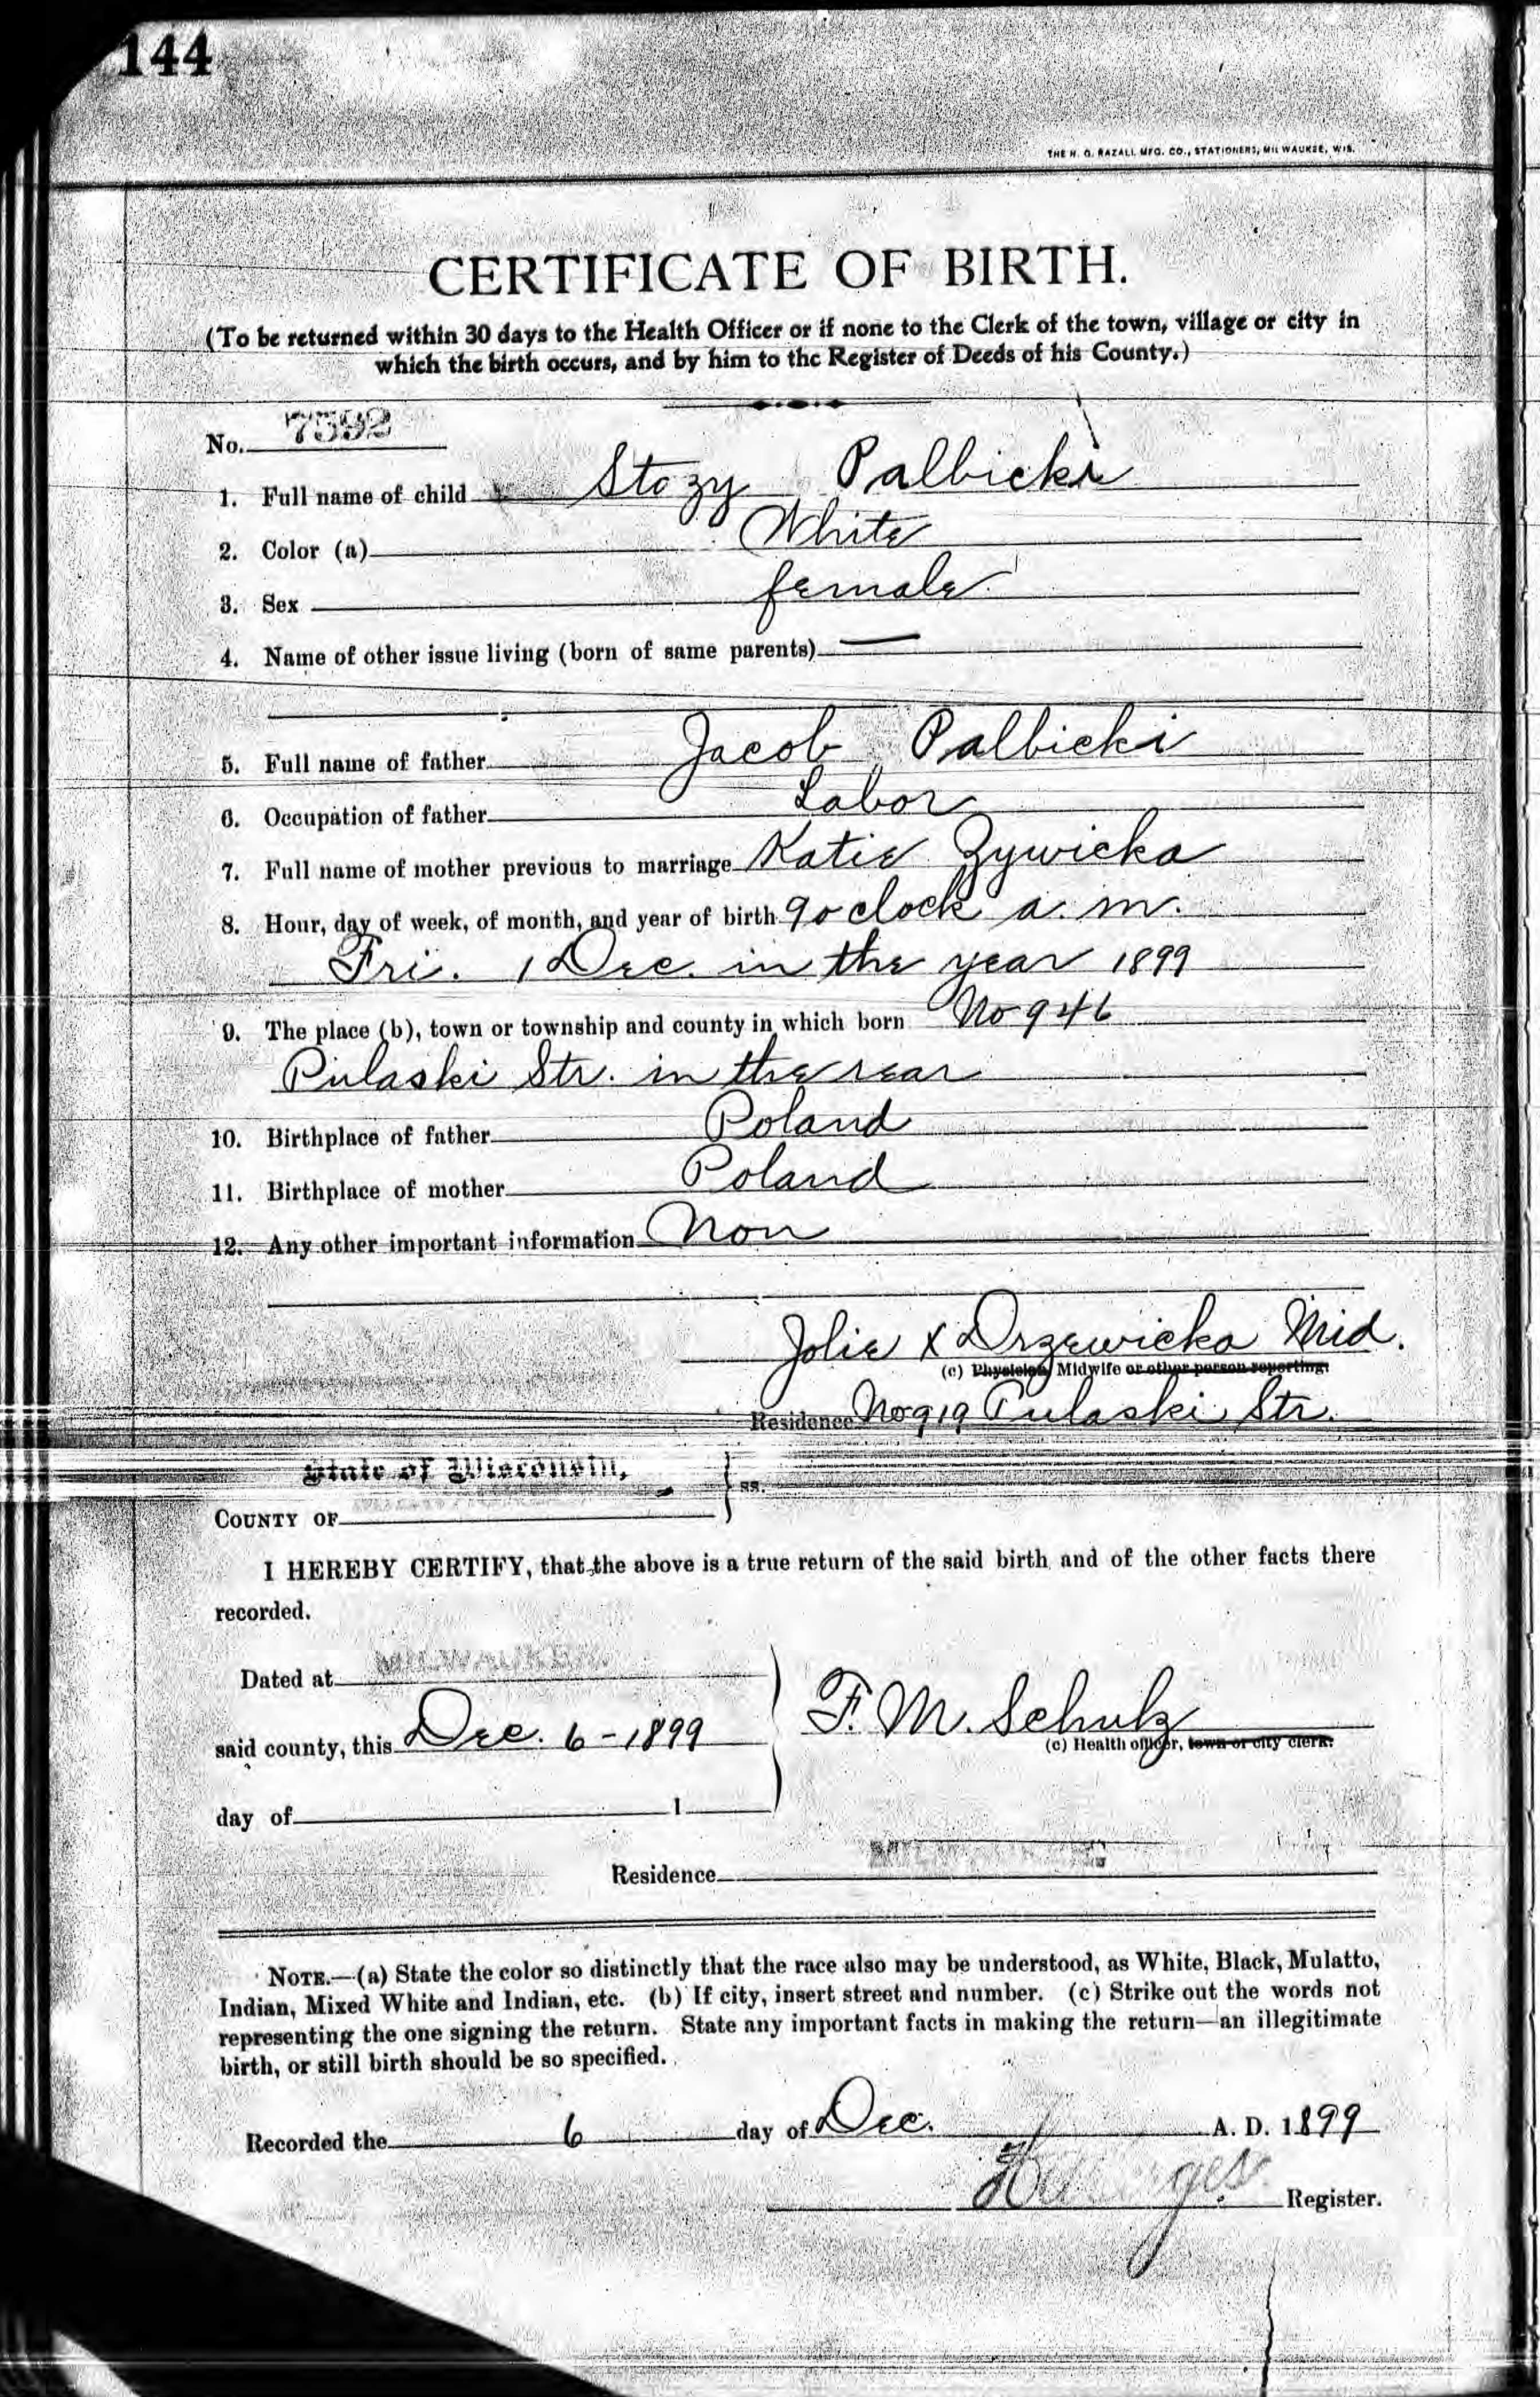 144
THE H. G. RAZALL MFG. CO., STATIONERS, MILWAUKEE, WIS.
CERTIFICATE OF BIRTH.
(To be returned within 30 days to the Health Officer or if none to the Clerk of the town, village or city in
which the birth occurs, and by him to the Register of Deeds of his County.)
No. 7592
1. Full name of child Stozy Palbicki
2. Color (a) White
3. Sex female
4. Name of other issue living (born of same parents) —
5. Full name of father Jacob Palbicki
6. Occupation of father Labor
7. Full name of mother previous to marriage Katie Zywicka
8. Hour, day of week, of month, and year of birth 9 o clock a. m.
Fri. 1 Dec. in the year 1899
9. The place (b), town or township and county in which born No 946
Pulaski Str. in the rear
10. Birthplace of father Poland
11. Birthplace of mother Poland
12. Any other important information Non
Jolie X Drzewicka Mid.
(c) Physician, Midwife or other person reporting.
Residence No 919 Pulaski Str.
State of Wisconsin,
COUNTY OF } ss.
I HEREBY CERTIFY, that the above is a true return of the said birth and of the other facts there
recorded.
Dated at MILWAUKEE
said county, this Dec. 6 - 1899
F. M. Schulz
(c) Health officer, town or city clerk.
day of 1
Residence MILWAUKEE
NOTE.—(a) State the color so distinctly that the race also may be understood, as White, Black, Mulatto,
Indian, Mixed White and Indian, etc. (b) If city, insert street and number. (c) Strike out the words not
representing the one signing the return. State any important facts in making the return—an illegitimate
birth, or still birth should be so specified.
Recorded the 6 day of Dec. A. D. 1899
Register.